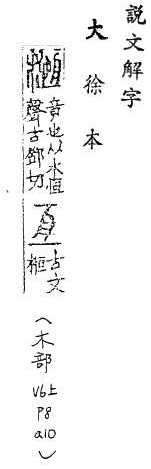 說文解字
大徐本
㮓
竟也从木恆
聲古鄧切
亙
古文
㮓
(木部
V6上
P8
a10)